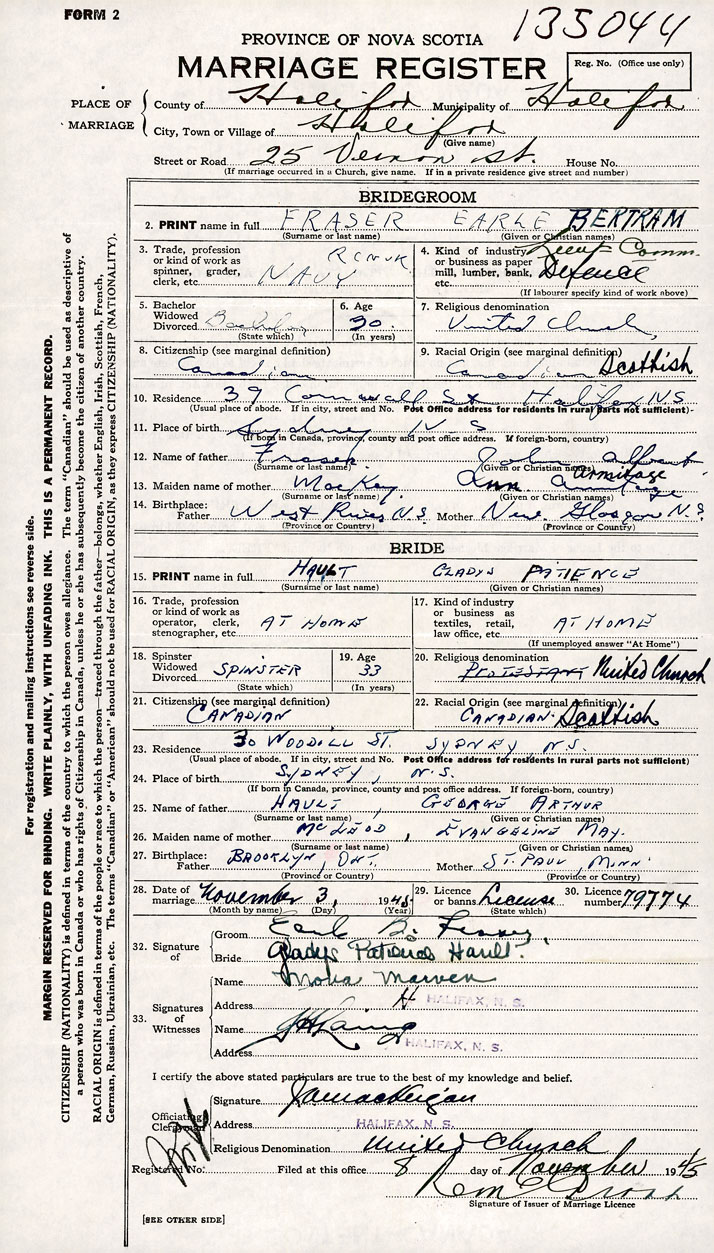 FORM 2
135044
PROVINCE OF NOVA SCOTIA
MARRIAGE REGISTER
Reg. No. (Office use only)
PLACE OF MARRIAGE
County of Halifax Municipality of Halifax
City, Town or Village of Halifax
(Give name)
Street or Road 25 Vernon St. House No.
(If marriage occurred in a Church, give name. If in a private residence give street and number)
BRIDEGROOM
2. PRINT name in full FRASER EARLE BERTRAM
(Surname or last name) (Given or Christian names)
3. Trade, profession or kind of work as spinner, grader, clerk, etc. NAVY
4. Kind of industry or business as paper mill, lumber, bank, etc. Defence
(If labourer specify kind of work above)
5. Bachelor Widowed Divorced Bachelor
(State which)
6. Age 30
(In years)
7. Religious denomination United Church
8. Citizenship (see marginal definition) Canadian
9. Racial Origin (see marginal definition) Canadian Scottish
10. Residence 39 Cornwall St Halifax NS
(Usual place of abode. If in city, street and No. Post Office address for residents in rural parts not sufficient)
11. Place of birth Sydney N S
(If born in Canada, province, county and post office address. If foreign-born, country)
12. Name of father Fraser John
(Surname or last name) (Given or Christian names)
13. Maiden name of mother MacKay Ann Armitage
(Surname or last name) (Given or Christian names)
14. Birthplace: Father West River N.S. Mother New Glasgow N.S.
(Province or Country) (Province or Country)
BRIDE
15. PRINT name in full HAULT GLADYS PATIENCE
(Surname or last name) (Given or Christian names)
16. Trade, profession or kind of work as operator, clerk, stenographer, etc. AT HOME
17. Kind of industry or business as textiles, retail, law office, etc. AT HOME
(If unemployed answer "At Home")
18. Spinster Widowed Divorced SPINSTER
(State which)
19. Age 33
(In years)
20. Religious denomination PROTESTANT United Church
21. Citizenship (see marginal definition) CANADIAN
22. Racial Origin (see marginal definition) CANADIAN Scottish
23. Residence 30 WOODILL ST. SYDNEY, N.S.
(Usual place of abode. If in city, street and No. Post Office address for residents in rural parts not sufficient)
24. Place of birth SYDNEY, N.S.
(If born in Canada, province, county and post office address. If foreign-born, country)
25. Name of father HAULT, GEORGE ARTHUR
(Surname or last name) (Given or Christian names)
26. Maiden name of mother MCLEOD, EVANGELINE MAY.
(Surname or last name) (Given or Christian names)
27. Birthplace: Father BROOKLYN, ONT. Mother ST. PAUL, MINN.
(Province or Country) (Province or Country)
28. Date of marriage November 3, 1945
(Month by name) (Day) (Year)
29. Licence or banns License
(State which)
30. Licence number 79774
32. Signature of
Groom Earle B. Fraser
Bride Gladys Patience Hault.
33. Signatures of Witnesses
Name
Address HALIFAX, N. S.
Name
Address HALIFAX, N. S.
I certify the above stated particulars are true to the best of my knowledge and belief.
Officiating Clergyman
Signature
Address HALIFAX, N. S.
Religious Denomination United Church
Registered No. Filed at this office 8 day of November 1945
Signature of Issuer of Marriage Licence
[SEE OTHER SIDE]
For registration and mailing instructions see reverse side.
MARGIN RESERVED FOR BINDING. WRITE PLAINLY, WITH UNFADING INK. THIS IS A PERMANENT RECORD.
CITIZENSHIP (NATIONALITY) is defined in terms of the country to which the person owes allegiance. The term "Canadian" should be used as descriptive of
a person who was born in Canada or who has rights of Citizenship in Canada, unless he or she has subsequently become the citizen of another country.
RACIAL ORIGIN is defined in terms of the people or race to which the person—traced through the father—belongs, whether English, Irish, Scottish, French,
German, Russian, Ukrainian, etc. The terms "Canadian" or "American" should not be used for RACIAL ORIGIN, as they express CITIZENSHIP (NATIONALITY).